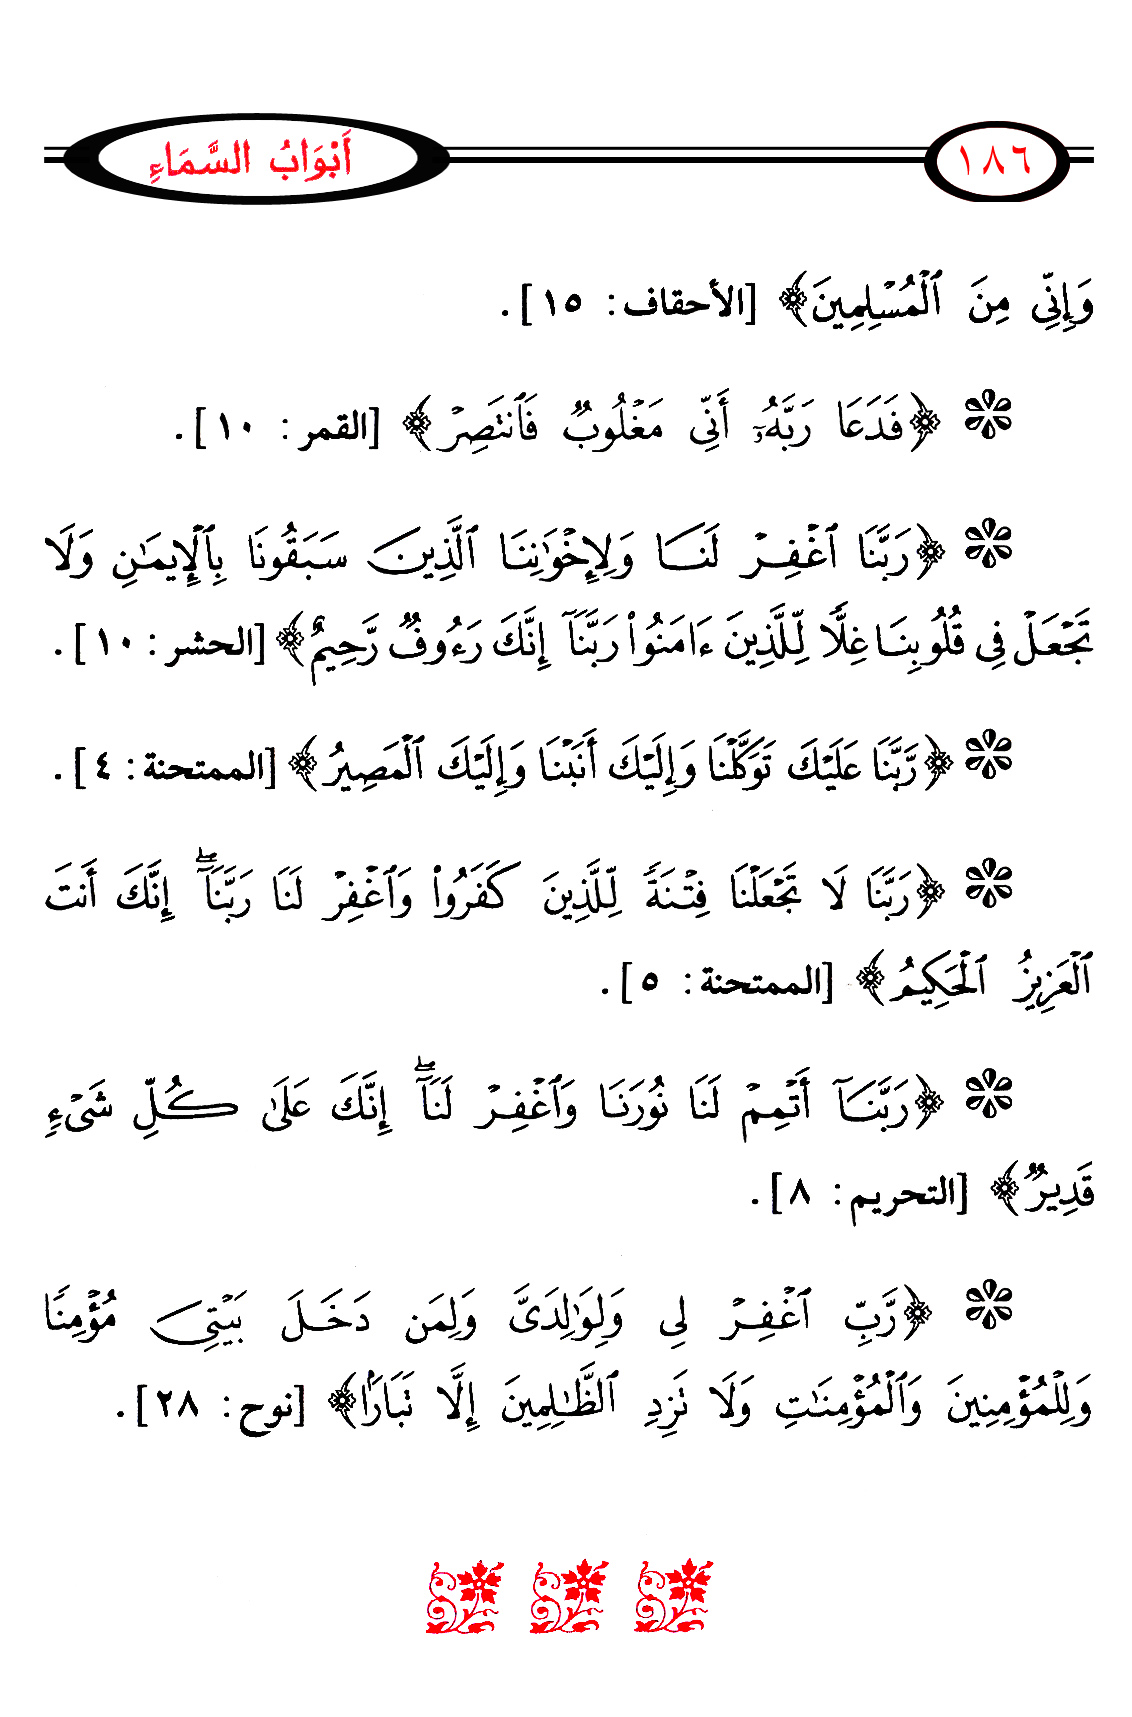 ١٨٦
أَبْوَابُ السَّمَاءِ
وَإِنِّي مِنَ ٱلْمُسْلِمِينَ﴾ [الأحقاف: ١٥].
﴿فَدَعَا رَبَّهُۥٓ أَنِّي مَغْلُوبٌ فَٱنتَصِرْ﴾ [القمر: ١٠].
﴿رَبَّنَا ٱغْفِرْ لَنَا وَلِإِخْوَٰنِنَا ٱلَّذِينَ سَبَقُونَا بِٱلْإِيمَٰنِ وَلَا
تَجْعَلْ فِي قُلُوبِنَا غِلًّا لِّلَّذِينَ ءَامَنُوا۟ رَبَّنَآ إِنَّكَ رَءُوفٌ رَّحِيمٌ﴾ [الحشر: ١٠].
﴿رَّبَّنَا عَلَيْكَ تَوَكَّلْنَا وَإِلَيْكَ أَنَبْنَا وَإِلَيْكَ ٱلْمَصِيرُ﴾ [الممتحنة: ٤].
﴿رَبَّنَا لَا تَجْعَلْنَا فِتْنَةً لِّلَّذِينَ كَفَرُوا۟ وَٱغْفِرْ لَنَا رَبَّنَآ ۖ إِنَّكَ أَنتَ
ٱلْعَزِيزُ ٱلْحَكِيمُ﴾ [الممتحنة: ٥].
﴿رَبَّنَآ أَتْمِمْ لَنَا نُورَنَا وَٱغْفِرْ لَنَآ ۖ إِنَّكَ عَلَىٰ كُلِّ شَىْءٍ
قَدِيرٌ﴾ [التحريم: ٨].
﴿رَّبِّ ٱغْفِرْ لِي وَلِوَٰلِدَىَّ وَلِمَن دَخَلَ بَيْتِيَ مُؤْمِنًا
وَلِلْمُؤْمِنِينَ وَٱلْمُؤْمِنَٰتِ وَلَا تَزِدِ ٱلظَّٰلِمِينَ إِلَّا تَبَارًۢا﴾ [نوح: ٢٨].